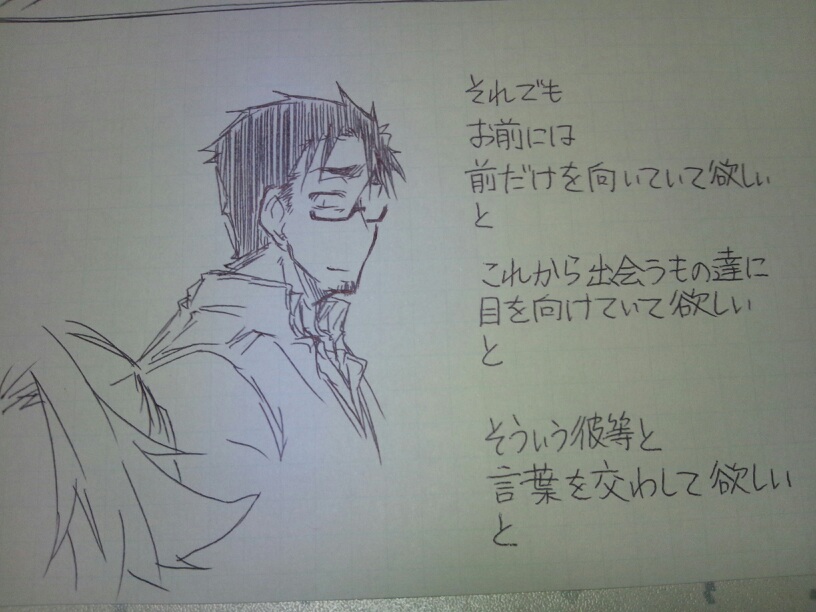 それでも
お前には
前だけを向いていて欲しい
と
これから出会うもの達に
目を向けていて欲しい
と
そういう彼等と
言葉を交わして欲しい
と